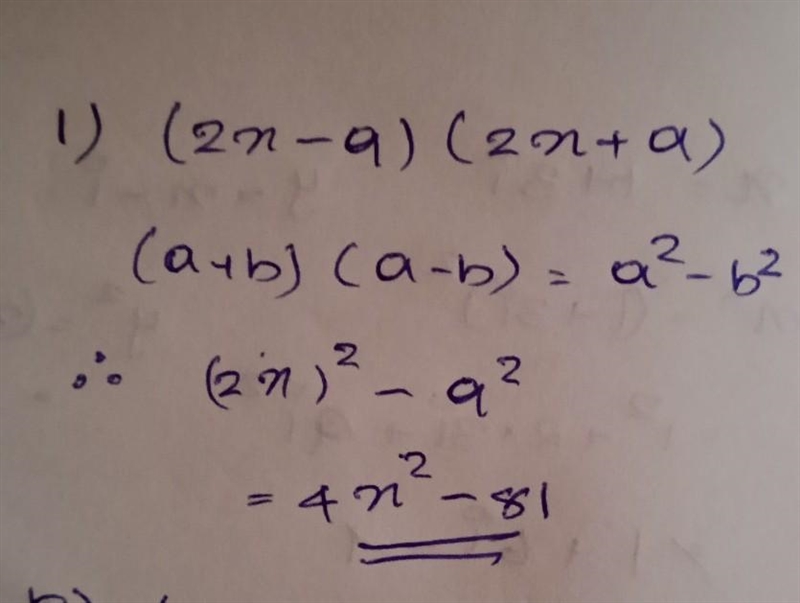 1) (2x - 9) (2x + 9)
(a+b) (a-b) = a² - b²
∴ (2x)² - 9²
= 4x² - 81